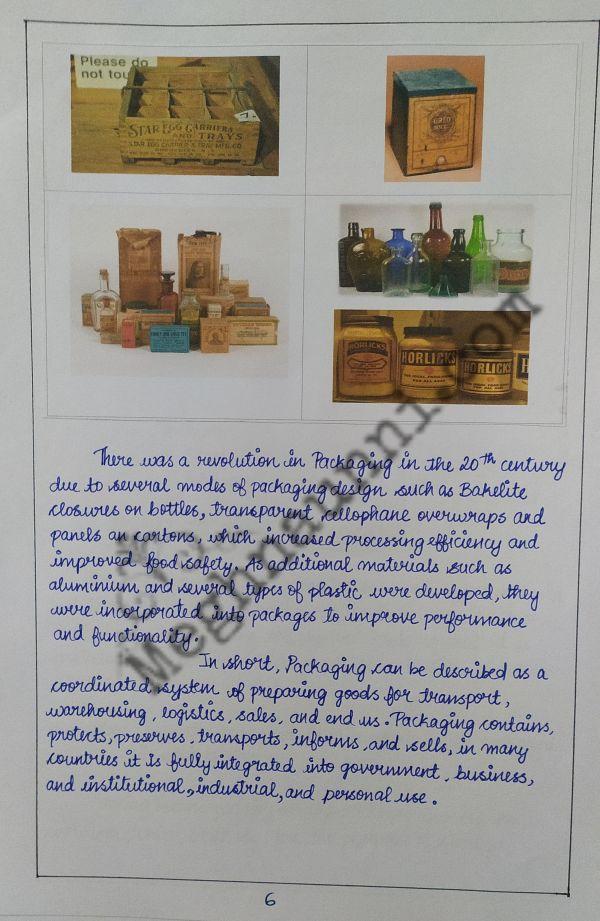 Please do
not tou
7.
STAR EGG CARRIERS
AND TRAYS
STAR EGG CARRIER & TRAY MFG. CO.
HORLICKS
HORLICKS
THE IDEAL FOOD DRINK
FOR ALL AGES
HORLICKS
FOR ALL AGES
There was a revolution in Packaging in the 20th century
due to several modes of packaging design such as Bakelite
closures on bottles, transparent cellophane overwraps and
panels an cartons, which increased processing efficiency and
improved food safety. As additional materials such as
aluminium and several types of plastic were developed, they
were incorporated into packages to improve performance
and functionality.
In short, Packaging can be described as a
coordinated system of preparing goods for transport,
warehousing, logistics, sales, and end us. Packaging contains,
protects, preserves, transports, informs, and sells, in many
countries it is fully integrated into government, business,
and institutional, industrial, and personal use.
6